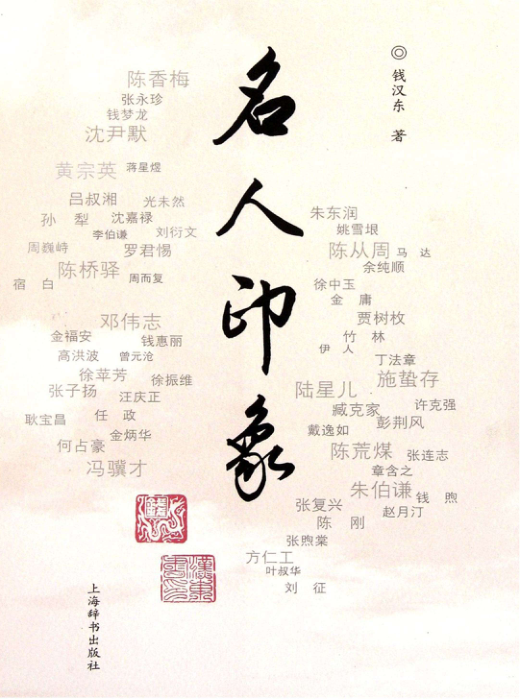 名人印象
◎钱汉东 著
陈香梅
张永珍
钱梦龙
沈尹默
黄宗英 蒋星煜
吕叔湘 光未然
孙犁 沈嘉禄
李伯谦 刘衍文
周巍峙 罗君惕
陈桥驿 周而复
宿白
邓伟志
金福安 钱惠丽
高洪波 曾元沧
徐苹芳 徐振维
张子扬 汪庆正
耿宝昌 任政
金炳华
何占豪
冯骥才
朱东润
姚雪垠
陈从周 马达
余纯顺
徐中玉
金庸
贾树枚
竹林
伊人
丁法章
施蛰存
陆星儿
臧克家 许克强
戴逸如 彭荆风
陈荒煤 张连志
章含之
朱伯谦 钱煦
张复兴 赵月汀
陈刚
张煦棠
方仁工
叶叔华
刘征
上海辞书出版社